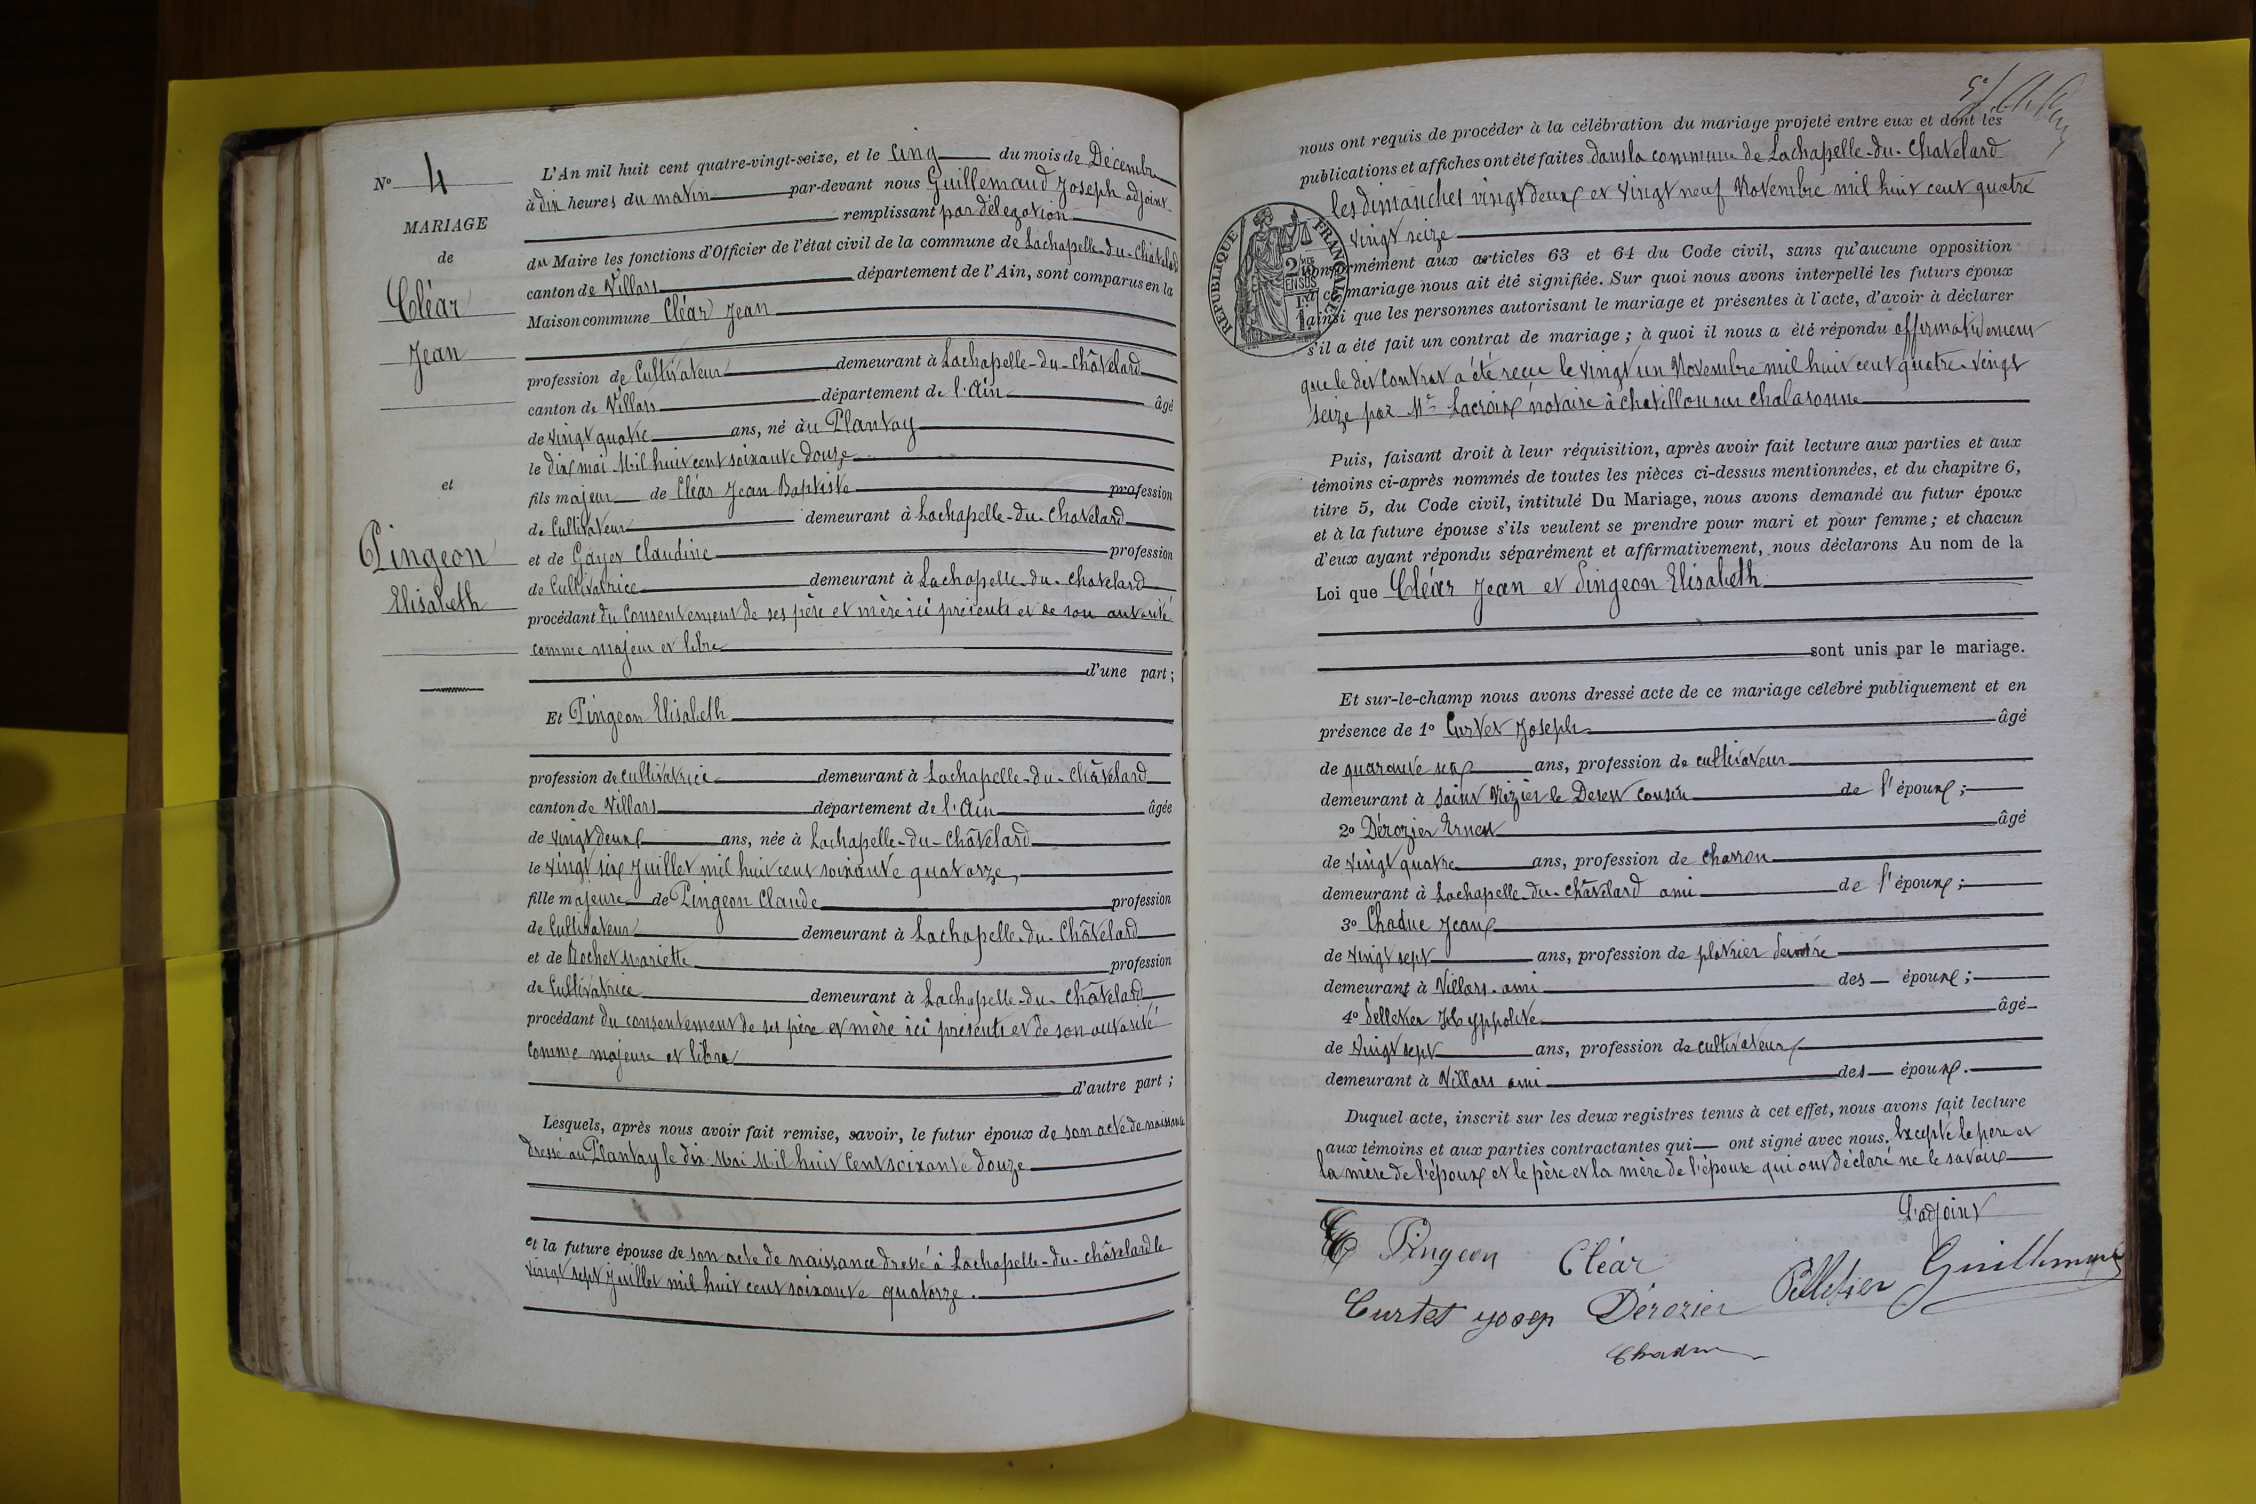 N° 4
MARIAGE
de
Cléar
Jean
et
Pingeon
Elisabeth
L'An mil huit cent quatre-vingt-seize, et le cinq du mois de Décembre
à dix heures du matin par-devant nous Guillemaud Joseph adjoint
remplissant par délégation
du Maire les fonctions d'Officier de l'état civil de la commune de Lachapelle-du-Châtelard
canton de Villars département de l'Ain, sont comparus en la
Maison commune Cléar Jean
profession de Cultivateur demeurant à Lachapelle-du-Châtelard
canton de Villars département de l'Ain âgé
de vingt quatre ans, né au Plantay
le dix mai Mil huit cent soixante douze
fils majeur de Cléar Jean Baptiste profession
de Cultivateur demeurant à Lachapelle-du-Chatelard
et de Gayet Claudine profession
de Cultivatrice demeurant à Lachapelle-du-Chatelard
procédant du Consentement de ses père et mère ici présents et de son autorité
comme majeur et libre
d'une part ;
Et Pingeon Elisabeth
profession de cultivatrice demeurant à Lachapelle-du-Châtelard
canton de Villars département de l'Ain âgée
de vingt deux ans, née à Lachapelle-du-Châtelard
le vingt six Juillet mil huit cent soixante quatorze,
fille majeure de Pingeon Claude profession
de Cultivateur demeurant à Lachapelle-du-Châtelard
et de Rochet Mariette profession
de Cultivatrice demeurant à Lachapelle-du-Châtelard
procédant du consentement de ses père et mère ici présents et de son autorité
comme majeure et libre
d'autre part ;
Lesquels, après nous avoir fait remise, savoir, le futur époux de son acte de naissance
dressé au Plantay le dix Mai Mil huit Cent soixante douze
et la future épouse de son acte de naissance dressé à Lachapelle-du-châtelard le
vingt sept Juillet mil huit cent soixante quatorze.
nous ont requis de procéder à la célébration du mariage projeté entre eux et dont les
publications et affiches ont été faites dans la commune de Lachapelle-du-Chatelard
les dimanches vingt deux et vingt neuf Novembre mil huit cent quatre
vingt seize
RÉPUBLIQUE FRANÇAISE
conformément aux articles 63 et 64 du Code civil, sans qu'aucune opposition
ce mariage nous ait été signifiée. Sur quoi nous avons interpellé les futurs époux
ainsi que les personnes autorisant le mariage et présentes à l'acte, d'avoir à déclarer
s'il a été fait un contrat de mariage ; à quoi il nous a été répondu affirmativement
que le dit Contrat a été reçu le vingt un Novembre mil huit cent quatre-vingt
seize par Me Lacroix notaire à chatillon sur chalaronne
Puis, faisant droit à leur réquisition, après avoir fait lecture aux parties et aux
témoins ci-après nommés de toutes les pièces ci-dessus mentionnées, et du chapitre 6,
titre 5, du Code civil, intitulé Du Mariage, nous avons demandé au futur époux
et à la future épouse s'ils veulent se prendre pour mari et pour femme ; et chacun
d'eux ayant répondu séparément et affirmativement, nous déclarons Au nom de la
Loi que Cléar Jean et Pingeon Elisabeth
sont unis par le mariage.
Et sur-le-champ nous avons dressé acte de ce mariage célébré publiquement et en
présence de 1° Curtet Joseph âgé
de quarante six ans, profession de cultivateur
demeurant à Saint Nizier le Desert cousin de l'époux ;
2° Dérozier Ernest âgé
de vingt quatre ans, profession de charron
demeurant à Lachapelle-du-Châtelard ami de l'époux ;
3° Chadue Jean
de vingt sept ans, profession de platrier peintre
demeurant à Villars ami des époux ;
4° Pelletier Hyppolite âgé
de vingt sept ans, profession de cultivateur
demeurant à Villars ami des époux.
Duquel acte, inscrit sur les deux registres tenus à cet effet, nous avons fait lecture
aux témoins et aux parties contractantes qui ont signé avec nous. Excepté le père et
la mère de l'époux et le père et la mère de l'épouse qui ont déclaré ne le savoir
L'adjoint
E Pingeon Cléar Pelletier Guillemaud
Curtet yosep Dérozier
Chadue